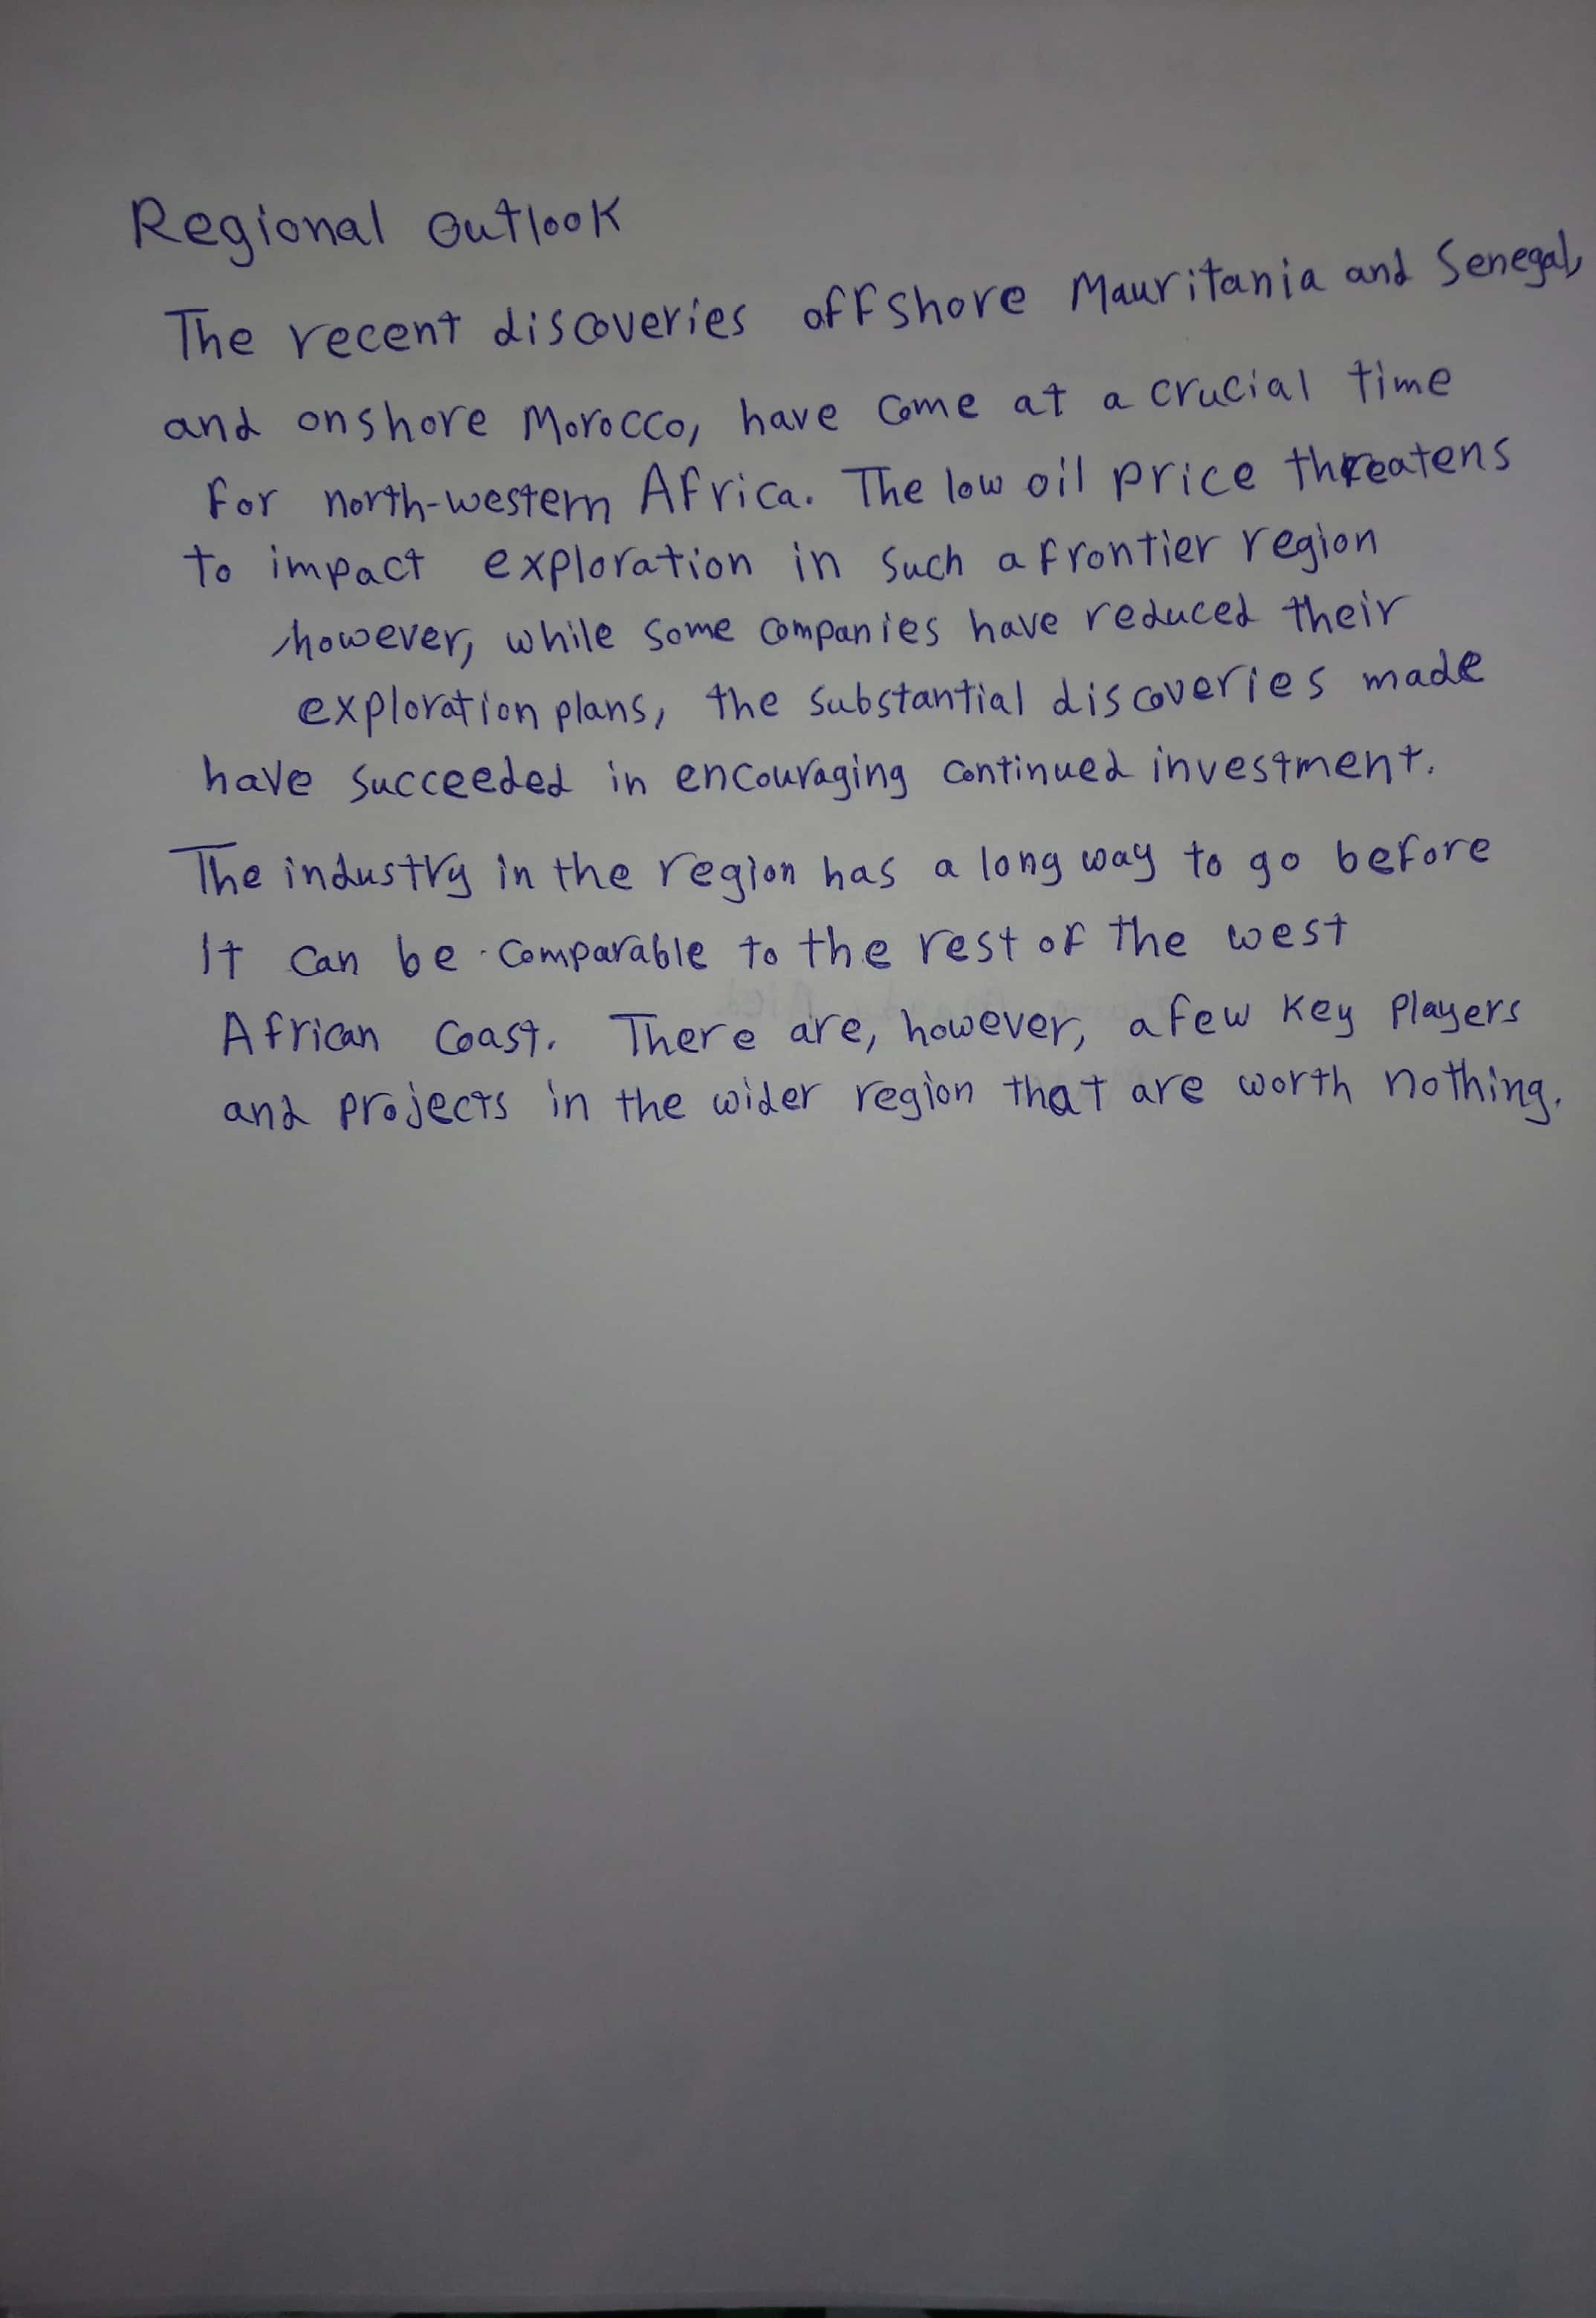 Regional Outlook
The recent discoveries offshore Mauritania and Senegal,
and onshore Morocco, have come at a crucial time
for north-western Africa. The low oil price threatens
to impact exploration in such a frontier region
however, while some companies have reduced their
exploration plans, the substantial discoveries made
have succeeded in encouraging continued investment.
The industry in the region has a long way to go before
It can be comparable to the rest of the west
African coast. There are, however, a few key players
and projects in the wider region that are worth nothing.